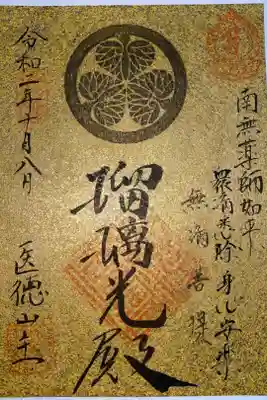 南無薬師如来
衆病悉除 身心安楽
菩提
瑠璃光殿
令和二年十月八日
医徳山主